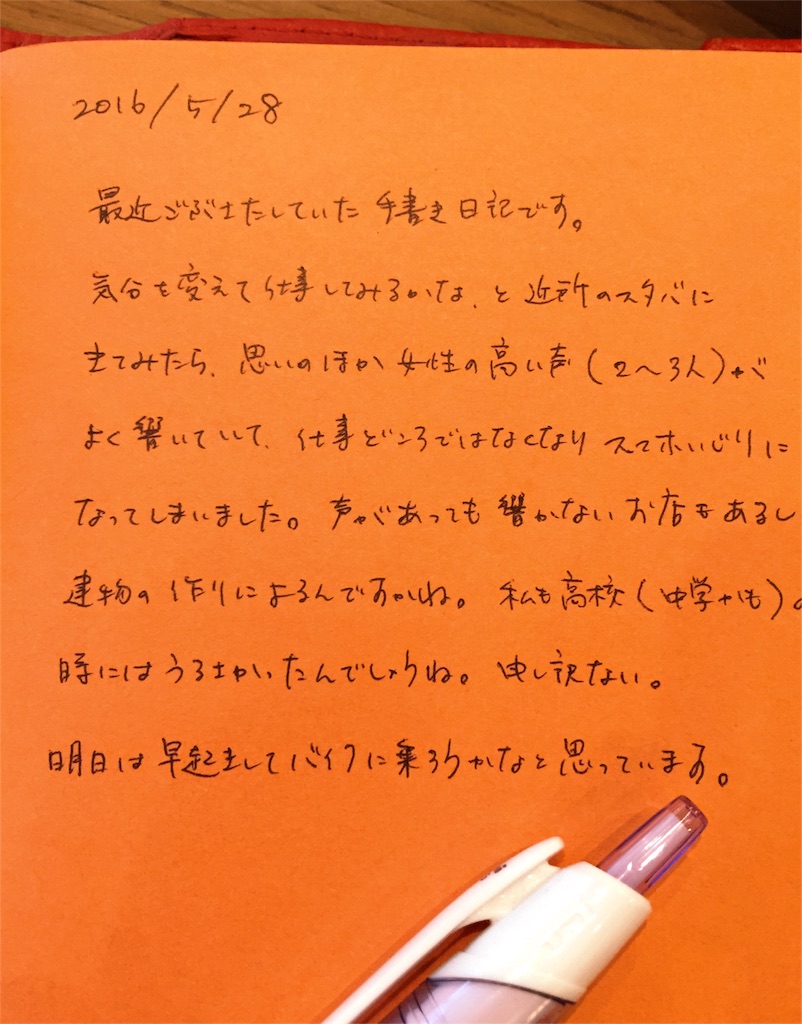 2016/5/28
最近ごぶさたしていた手書き日記です。
気分を変えて仕事してみるかな、と近所のスタバに
きてみたら、思いのほか女性の高い声(2〜3人)が
よく響いていて、仕事どころではなくなりスマホいじりに
なってしまいました。声があっても響かないお店もあるし
建物の作りによるんですかね。私も高校(中学かも)の
時にはうるさかったんでしょうね。申し訳ない。
明日は早起きしてバイクに乗ろうかなと思っています。
uni